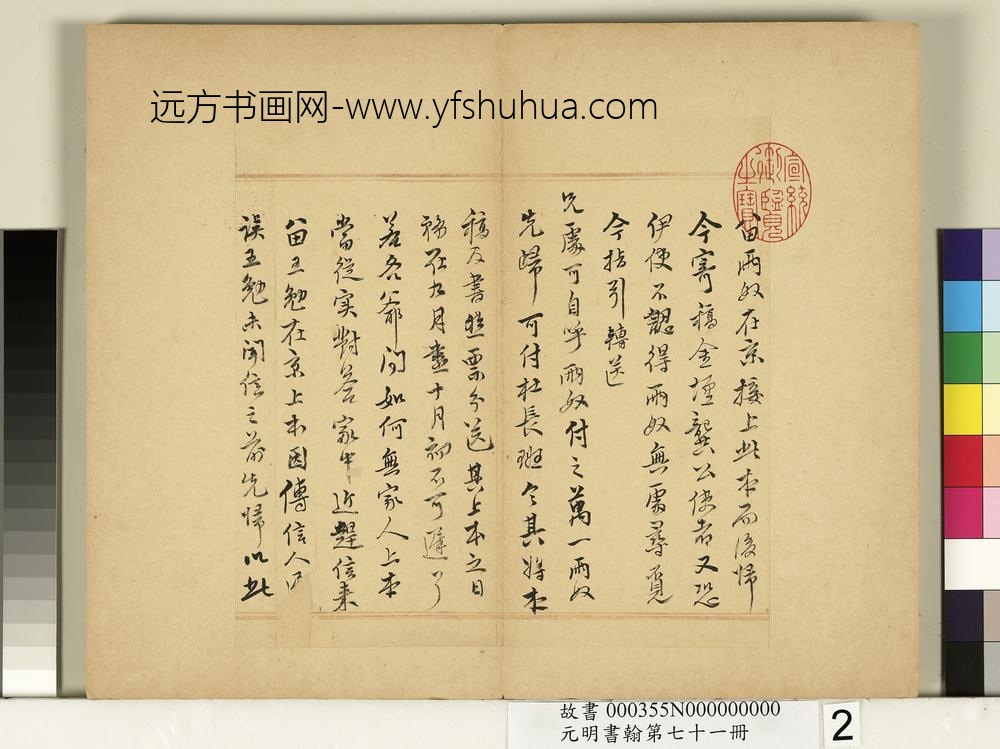 远方书画网-www.yfshuhua.com
宣統御覽之寶
留兩奴在京接上此本而後歸
今寄稿金壇龔公使者又恐
伊使不認得兩奴無處尋覓
今指引轉送
兄處可自呼兩奴付之萬一兩奴
先歸可付杜長班令其將本
稿及書照票分送其上本之日
務在九月盡十月初不可遲了
若各爺問如何無家人上本
當從實對答家中近趕信來
留王勉在京上本因傳信人
誤王勉未聞信之前先歸以此
故書 000355N000000000
元明書翰第七十一冊
2